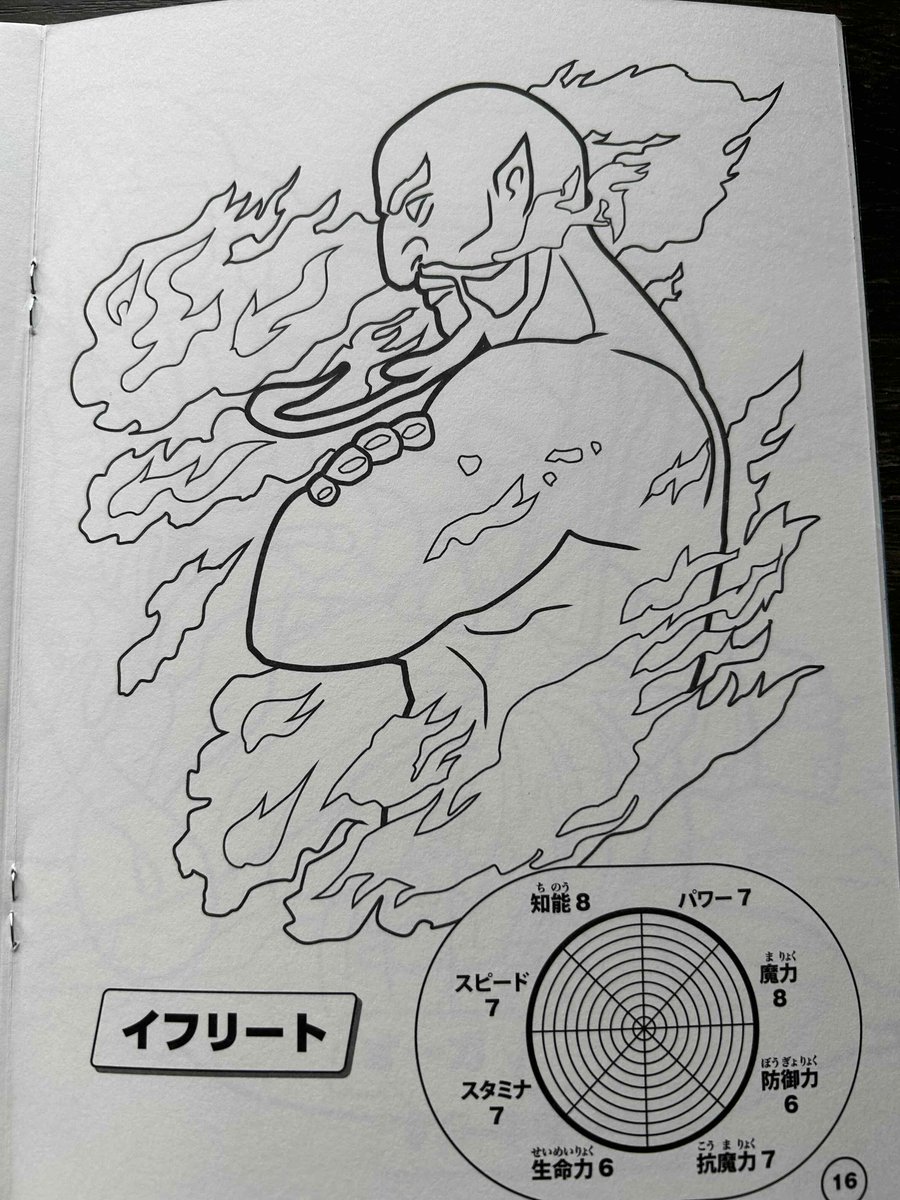 ちのう
知能 8
パワー 7
スピード
7
まりょく
魔力
8
イフリート
ぼうぎょりょく
防御力
6
スタミナ
7
せいめいりょく
生命力 6
こうまりょく
抗魔力 7
16